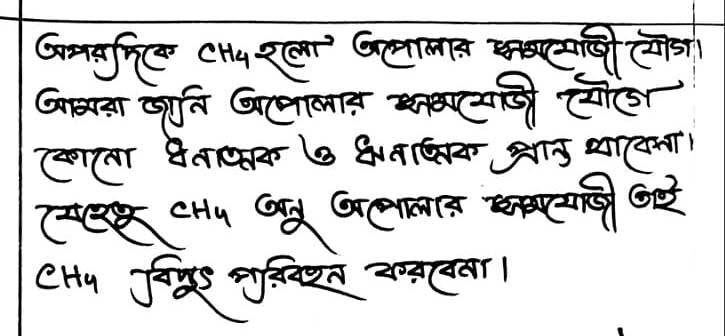 অপরদিকে CH4 হলো অপোলার সমযোজী যৌগ।
আমরা জানি অপোলার সমযোজী যৌগে
কোনো ধনাত্মক ও ঋনাত্মক প্রান্ত থাকেনা।
যেহেতু CH4 অনু অপোলার সমযোজী তাই
CH4 বিদ্যুৎ পরিবহন করবেনা।